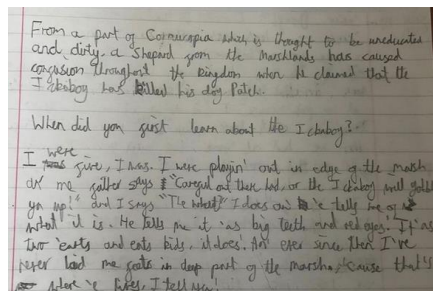 From a part of Cornucopia which is thought to be uneducated
and dirty, a Shepard from the Marshlands has caused
confusion throughout the kingdom when he claimed that the
Ickabog has killed his dog Patch.
When did you first learn about the Ickabog?
I were five, I was. I were playin' out in edge of the marsh
me father says "Careful out there lad, or the Ickabog will gobble
ya up!" and I says "The what?" I does an' 'e tells me
what it is. He tells me it 'as big teeth and red eyes. It 'as
two and eats kids, it does. An' ever since then I've
never laid me foots in deep part of the marsha, 'cause that's
where 'e lives, I tell you!